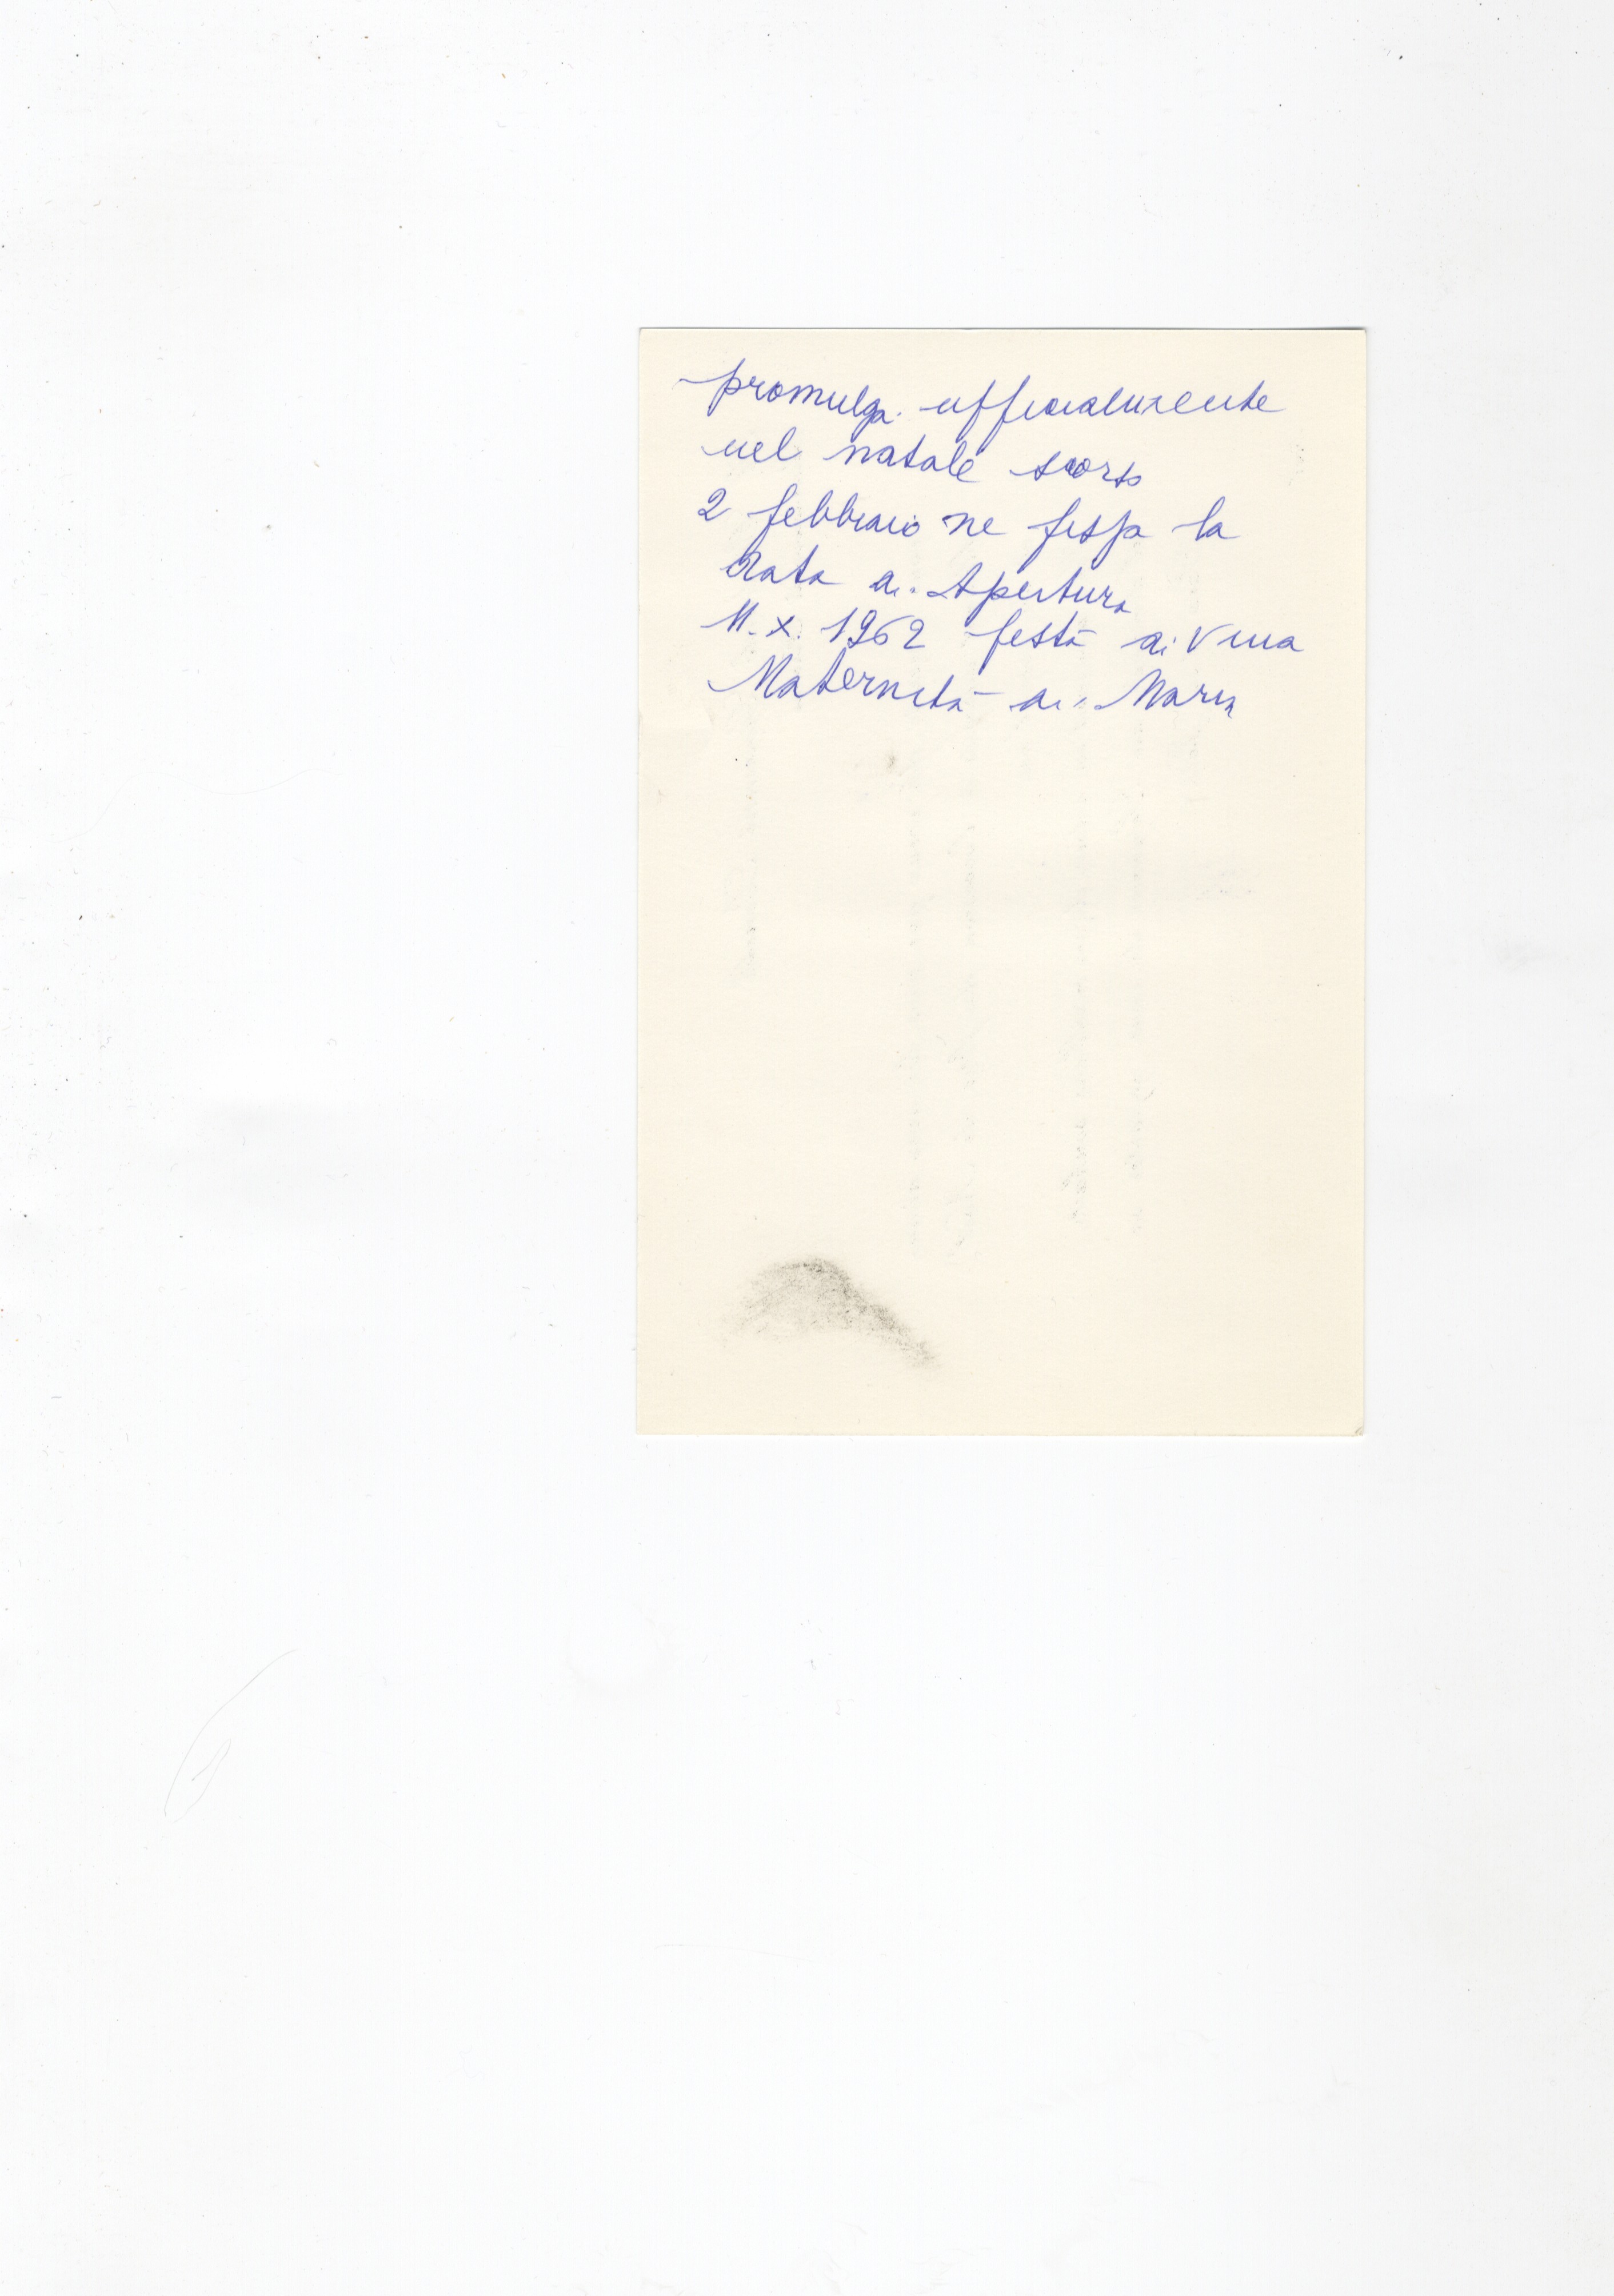 promulga ufficialmente
nel natale scorso
2 febbraio ne fissa la
data di Apertura
11.X.1962 festa divina
Maternità di Maria